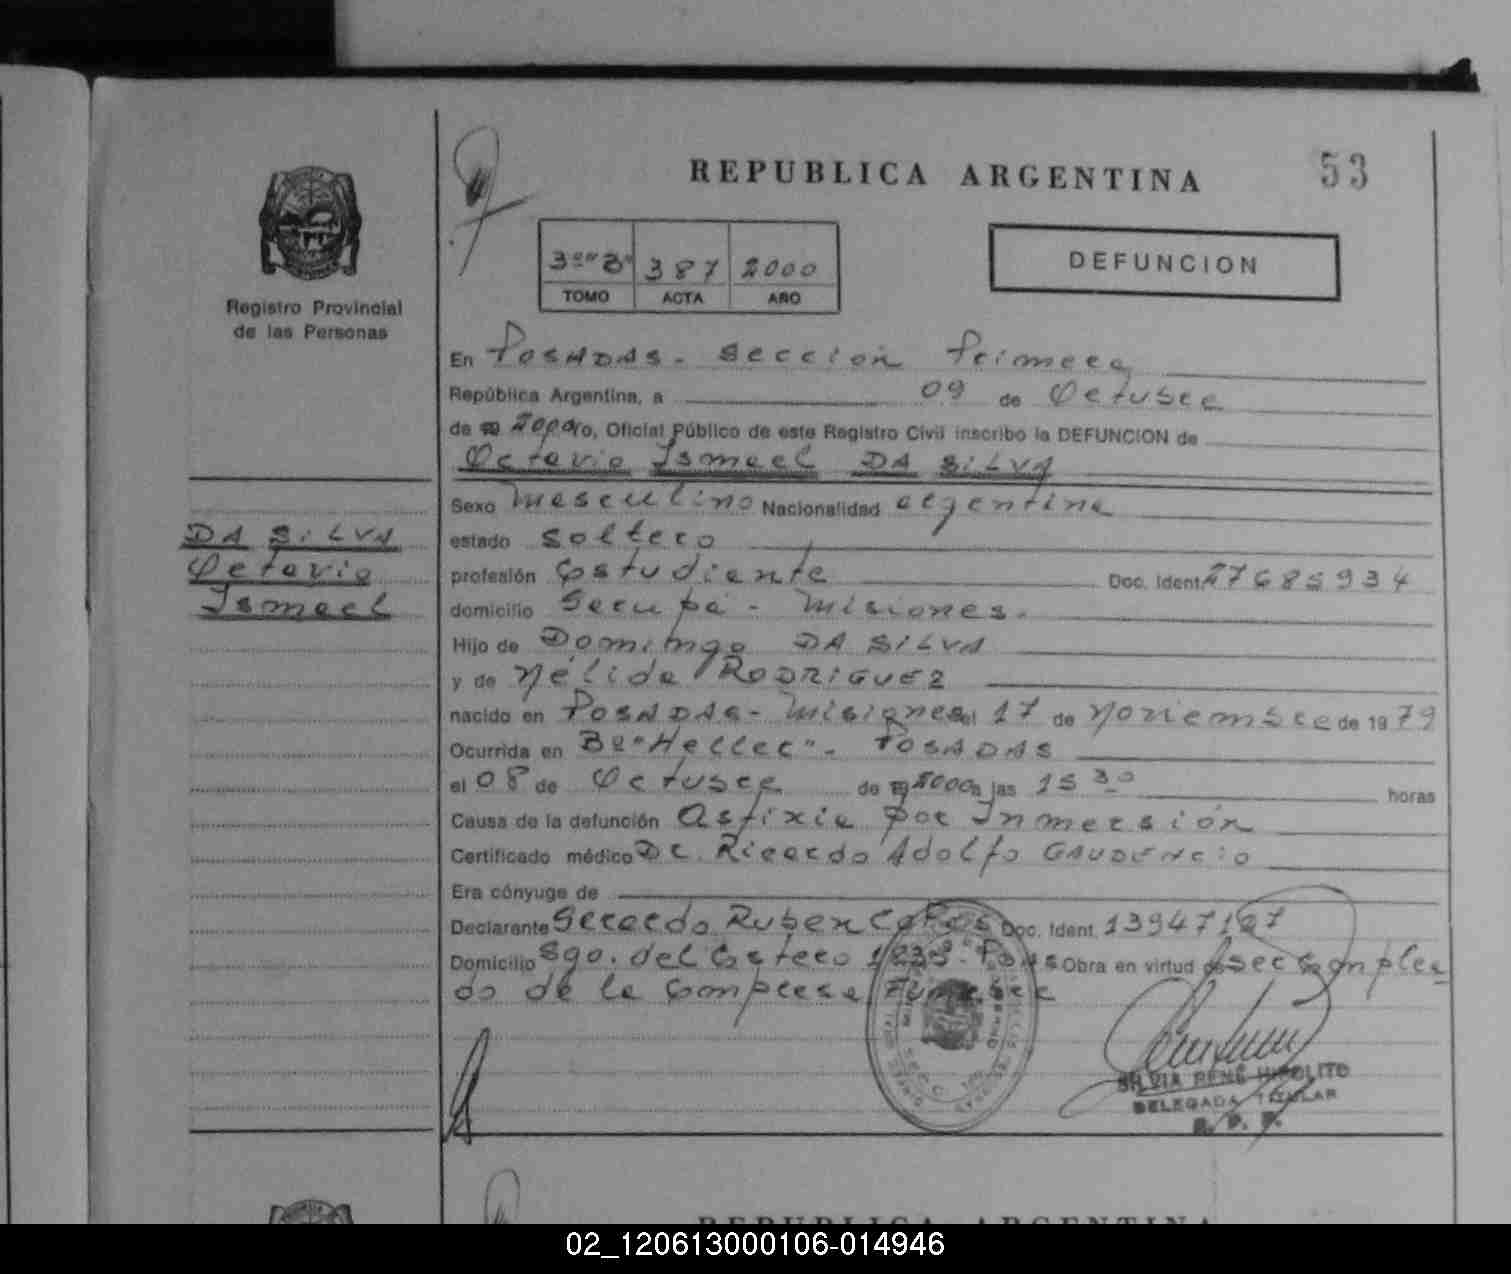 REPUBLICA ARGENTINA
53
DEFUNCION
3º "B" 387 2000
TOMO ACTA AÑO
Registro Provincial
de las Personas
DA SILVA
Octavio
Ismael
En POSADAS - Sección Primera
República Argentina, a 09 de Octubre
de 2000 Yo, Oficial Público de este Registro Civil inscribo la DEFUNCION de
Octavio Ismael DA SILVA
Sexo masculino Nacionalidad argentina
estado soltero
profesión Estudiante Doc. Ident. 27685934
domicilio Garupá - Misiones.
Hijo de Domingo DA SILVA
y de Nélida RODRIGUEZ
nacido en POSADAS - Misiones el 17 de Noviembre de 1979
Ocurrida en Bº "Heller" - POSADAS
el 08 de Octubre de 2000 a las 15 30 horas
Causa de la defunción Asfixia por Inmersión
Certificado médico Dr. Ricardo Adolfo GAUDENCIO
Era cónyuge de
Declarante Gerardo Ruben Doc. Ident. 13947127
Domicilio Sgo. del Estero Obra en virtud de ser Emplea-
do de la Empresa
SILVIA RENÉ HIPOLITO
DELEGADA TITULAR
REPUBLICA ARGENTINA
02_120613000106-014946